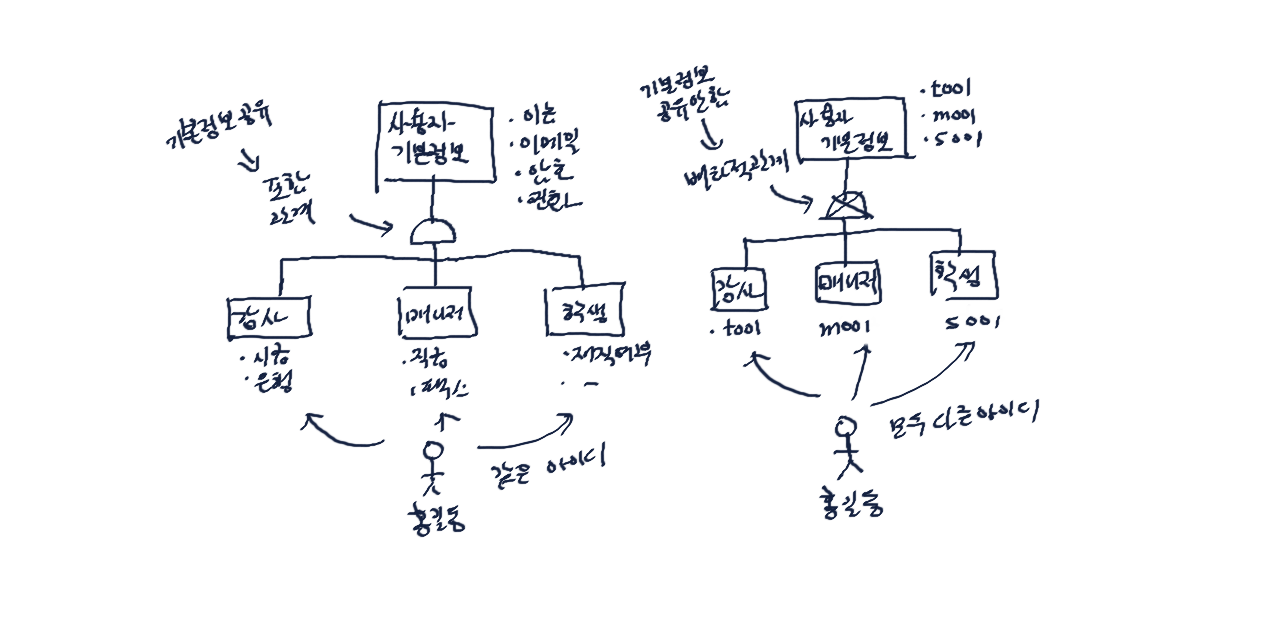 기본정보 공유
포함
관계
사용자
기본정보
· 이름
· 이메일
· 암호
· 전화
강사
· 시급
· 은행
매니저
· 직급
· 팩스
학생
· 재직여부
· -
같은 아이디
홍길동
기본정보
공유안함
배타적관계
사용자
기본정보
· t001
· m001
· s001
강사
· t001
매니저
m001
학생
s001
모두 다른아이디
홍길동